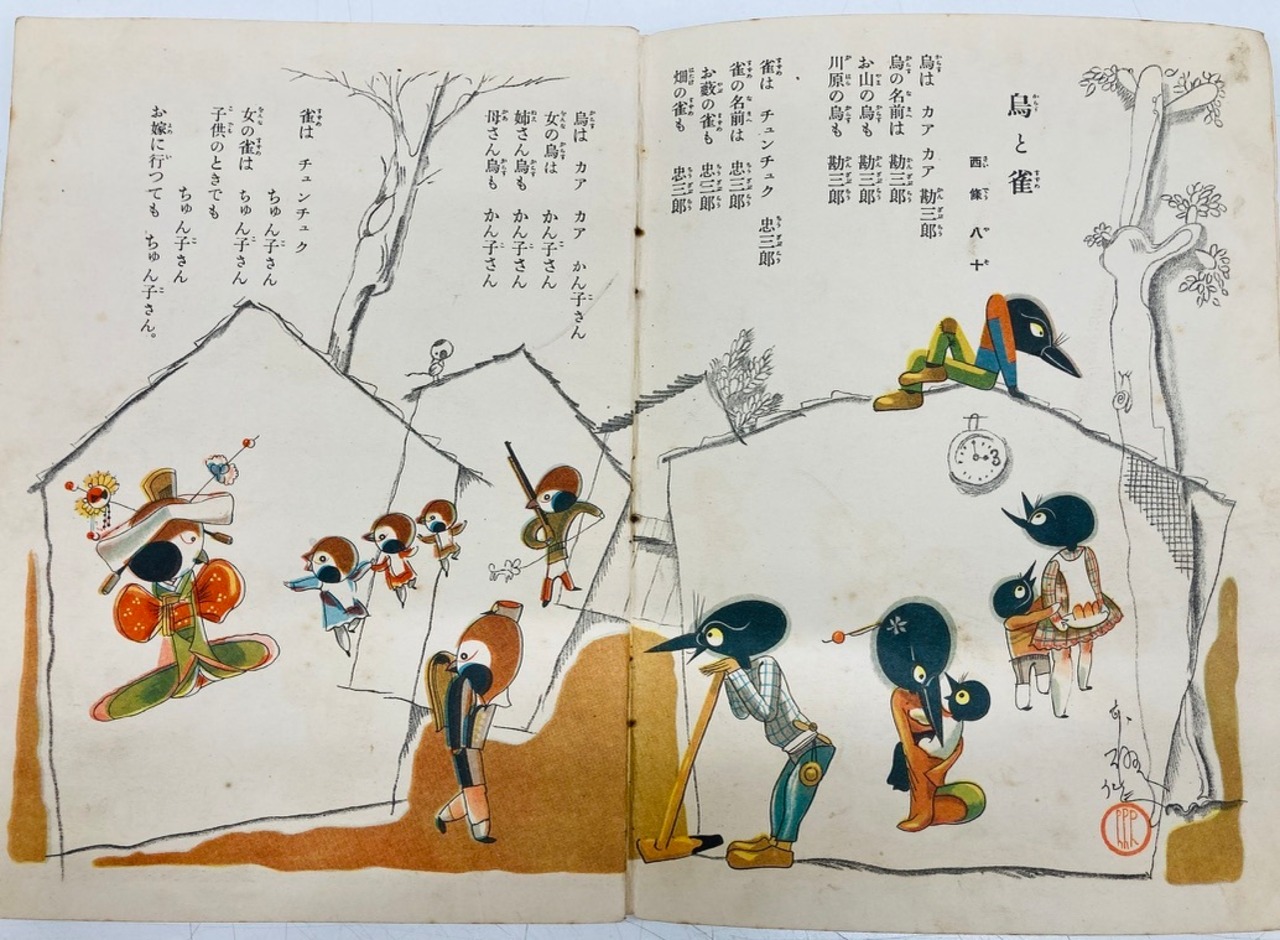 烏と雀
西條八十
烏は カア カア 勘三郎
烏の名前は 勘三郎
お山の烏も 勘三郎
川原の烏も 勘三郎
雀は チュンチュク 忠三郎
雀の名前は 忠三郎
お藪の雀も 忠三郎
畑の雀も 忠三郎
烏は カア カア かん子さん
女の烏は かん子さん
姉さん烏も かん子さん
母さん烏も かん子さん
雀は チュンチュク
ちゅん子さん
女の雀は ちゅん子さん
子供のときでも
ちゅん子さん
お嫁に行つても ちゅん子さん。